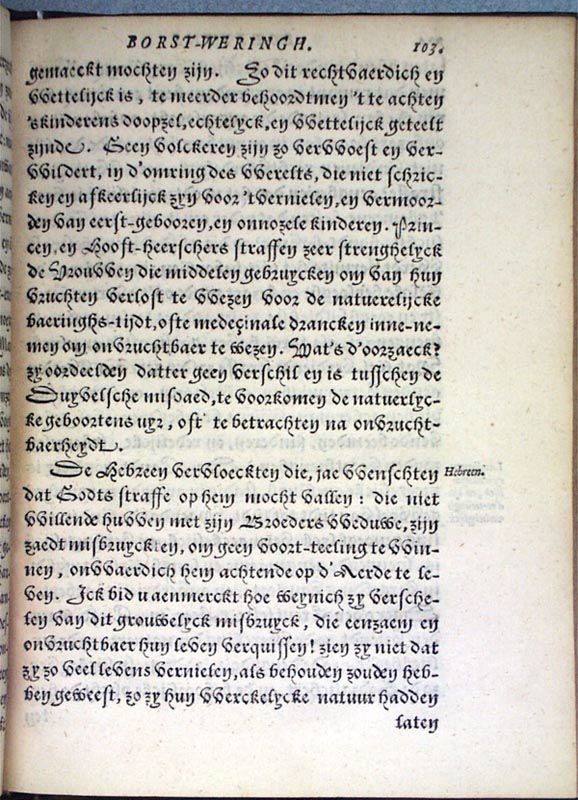 BORST-WERINGH.
103.
gemaeckt mochten zijn. Zo dit rechtvaerdich en
VVettelijck is, te meerder behoordtmen 't te achten
's kinderens doopzel, echtelyck, en VVettelijck geteelt
zijnde. Geen Volckeren zijn zo VerVVoest en Ver-
VVildert, in d'omring des VVerelts, die niet schric-
ken en afkeerlijck zyn voor 't Vernielen, en Vermoor-
den Van eerst-gebooren, en onnozele kinderen. Prin-
cen, en Hooft-heerschers straffen zeer strenghelyck
de VrouVVen die middelen gebruycken om Van hun
Vruchten Verlost te VVezen Voor de natuerelijcke
baeringhs-tijdt, ofte medeçinale drancken inne-ne-
men om onVruchtbaer te wezen. Wat's d'oorzaeck?
zy oordeelden datter geen Verschil en is tusschen de
Duyvelsche misdaed, te Voorkomen de natuerlyc-
ke geboortens uyr, oft te betrachten na onVrucht-
baerheydt.
De Hebreen VerVloeckten die, jae VVenschten
Hebreen.
dat Godts straffe op hem mocht Vallen: die niet
VVillende huVVen met zijn Broeders VVeduwe, zijn
zaedt misbruyckten, om geen Voort-teeling te VVin-
nen, onVVaerdich hem achtende op d'Aerde te le-
Ven. Ick bid u aenmerckt hoe weynich zy Versche-
len Van dit grouwelyck misbruyck, die eenzaem en
onVruchtbaer hun leven Verquissen! zien zy niet dat
zy zo Veel levens Vernielen, als behouden zouden heb-
ben geweest, zo zy hun VVerckelycke natuur hadden
laten